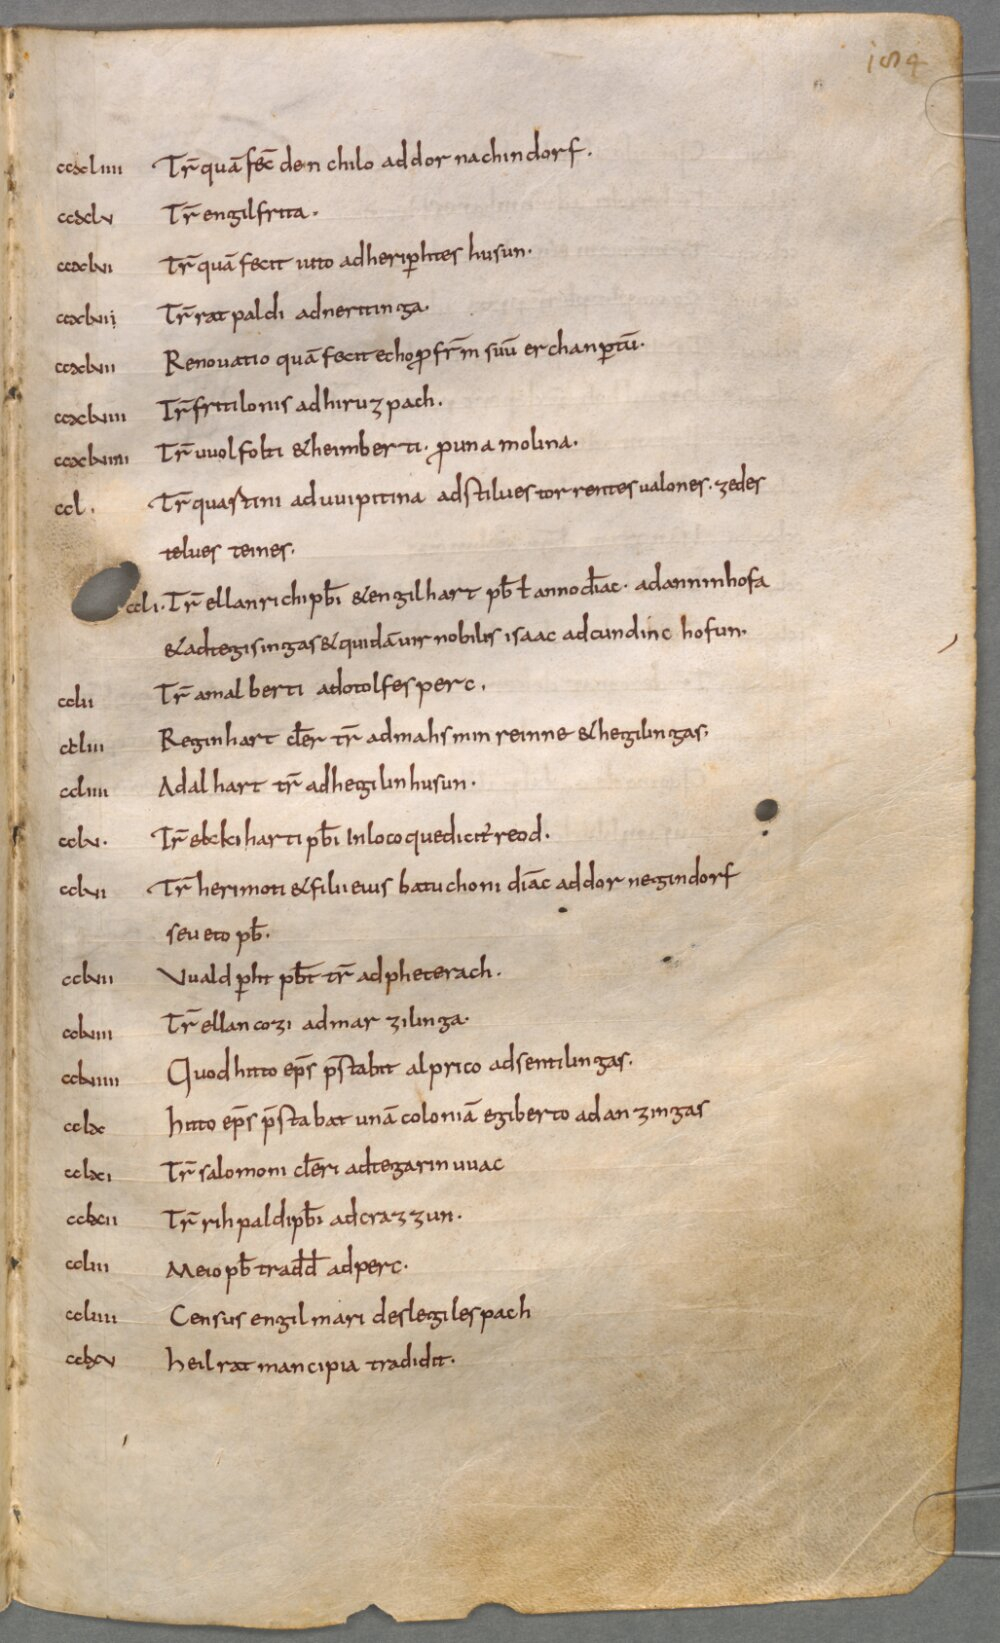 184
ccxliiii Tr̄ quā fec̄ denchilo ad dornachindorf.
ccxlv Tr̄ engilfrita.
ccxlvi Tr̄ quā fecit utto ad heriꝑhtes husun.
ccxlvii Tr̄ ratpaldi ad nerttinga.
ccxlvii Renouatio quā fecit echo ꝓ fr̄m suū erchanꝑtū.
ccxlviii Tr̄ fritilonis ad hiruzpach.
ccxlviiii Tr̄ uuolfolti & heimberti. pro una molina.
ccl. Tr̄ quastini ad uuipitina ad stilues torrentes ualones. zedes
telues teines.
ccli. Tr̄ ellanrichi pb̄i & engilhart pb̄t ł anno diac̄. ad anninhofa
& ad tegisingas & quidā uir nobilis isaac ad cundinc hofun.
cclii Tr̄ amalberti ad otolfesperc.
ccliii Reginhart cl̄er tr̄ ad mahsminreinne & hegilingas.
ccliiii Adalhart tr̄ ad hegilinhusun.
cclv. Tr̄ ekkiharti pb̄i In loco que dicit̄ reod.
cclvi Tr̄ herimoti & filii eius batuchoni diāc ad dornegindorf
seu eto pb̄.
cclvii Uualdꝑht pb̄t tr̄ ad pheterach.
cclviii Tr̄ ellancozi ad marzilinga.
cclviiii Quod hitto ep̄s p̄stabit alprico ad sentilingas.
cclx hitto ep̄s p̄stabat unā coloniā egiberto ad anzingas
cclxi Tr̄ salomoni cl̄eri ad tegarinuuac
cclxii Tr̄ rihpaldi pb̄i ad crazzun.
ccliii Meio pb̄ tradd̄ ad perc.
ccliiii Census engilmari de slegilespach
cclxv heilrat mancipia tradidit.